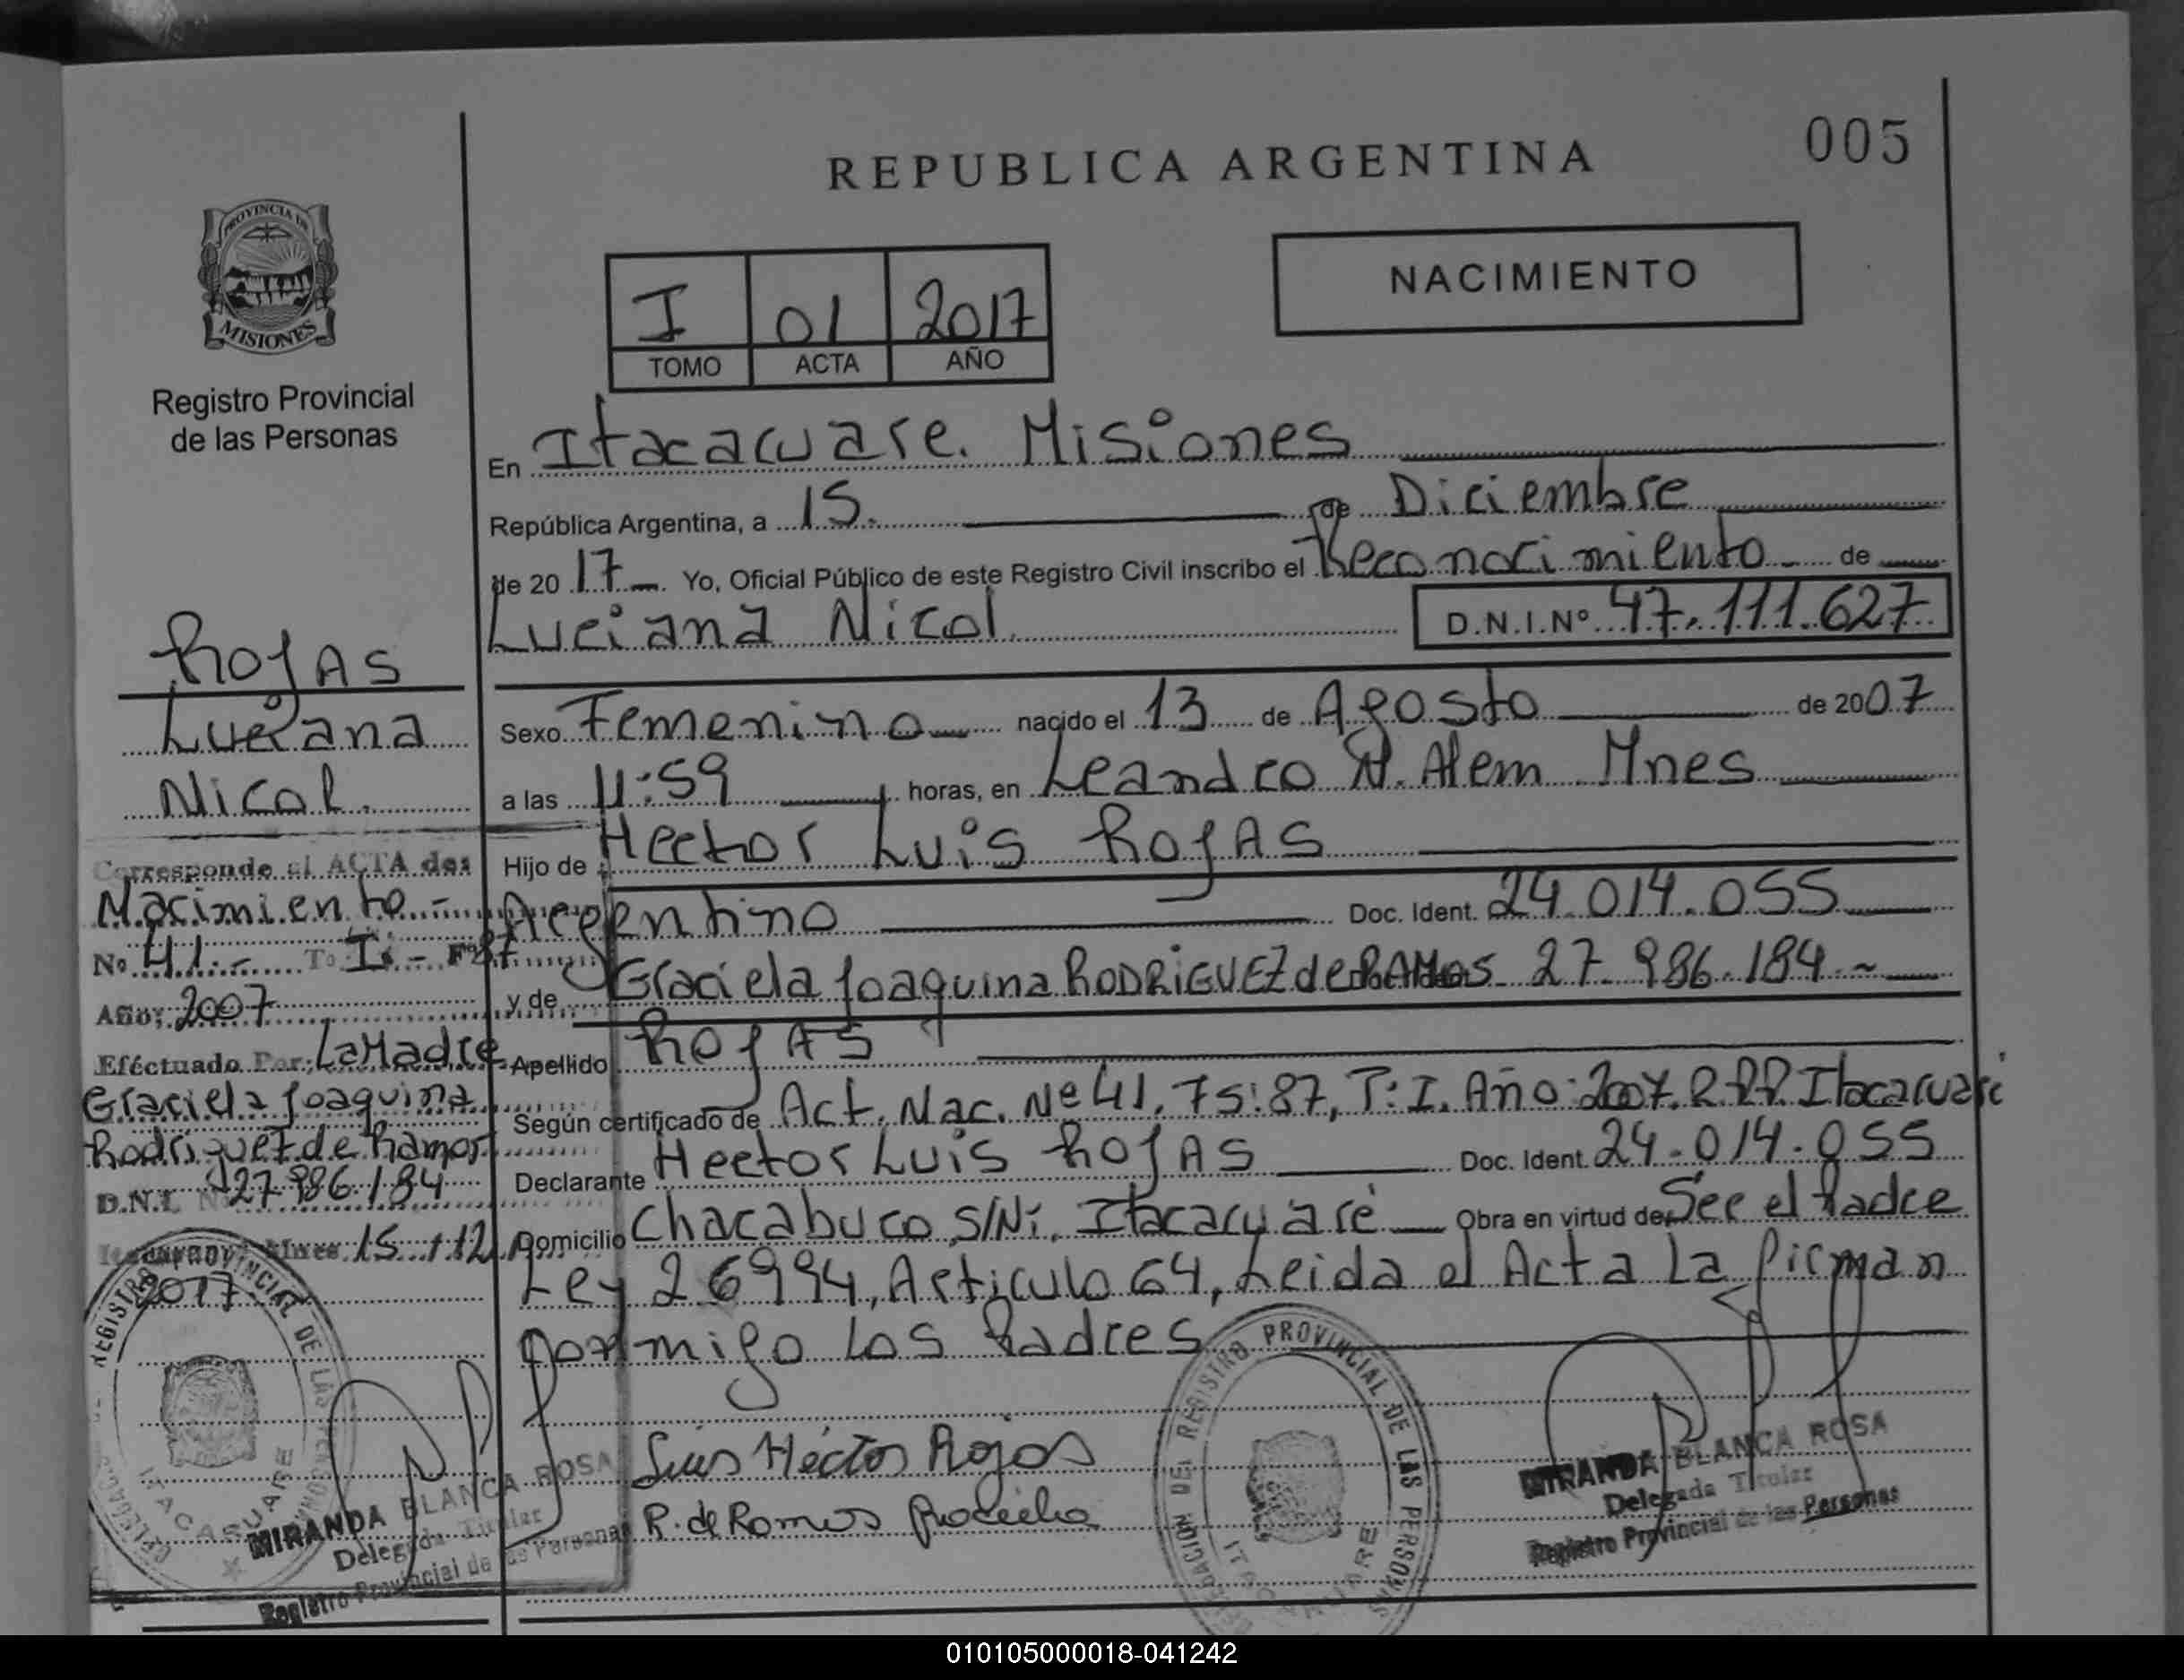 005
REPUBLICA ARGENTINA
NACIMIENTO
PROVINCIA DE
MISIONES
Registro Provincial
de las Personas
I 01 2017
TOMO ACTA AÑO
En Itacacuare. Misiones
República Argentina, a 15. de Diciembre
de 20 17 Yo, Oficial Público de este Registro Civil inscribo el Reconocimiento de
Luciana Nicol D.N.I.Nº 47.111.627
Sexo Femenino nacido el 13 de Agosto de 2007
a las 11:59 horas, en Leandro N. Alem Mnes
Hijo de Hector Luis Rojas
Argentino Doc. Ident. 24.014.055
y de Graciela Joaquina RODRIGUEZ de RAMOS 27.986.184
Apellido Rojas
Según certificado de Act. Nac. Nº 41, Fs: 87, T: I. Año: 2007. R.P.P. Itacacuaré
Declarante Hector Luis Rojas Doc. Ident. 24.014.055
Domicilio Chacabuco S/N:, Itacacuaré Obra en virtud de Ser el Padre
Ley 26994, Articulo 64, Leida el Acta La firman
conmigo Los Padres
Luis Héctor Rojas
R. de Ramos
ROJAS
Luciana
Nicol.
Corresponde al ACTA de:
Nacimiento
Nº 41 To I Fº 87
Año: 2007
Eféctuado Por: La Madre
Graciela Joaquina
Rodriguez de Ramos
D.N.I. Nº 27.986.184
Mnes 15/12/
2017
REGISTRO PROVINCIAL DE LAS PERSONAS
ITACARUARE
MIRANDA BLANCA ROSA
Delegada Titular
Registro Provincial de las Personas
DELEGACION DEL REGISTRO PROVINCIAL DE LAS PERSONAS
ITACARUARE
MIRANDA BLANCA ROSA
Delegada Titular
Registro Provincial de las Personas
010105000018-041242